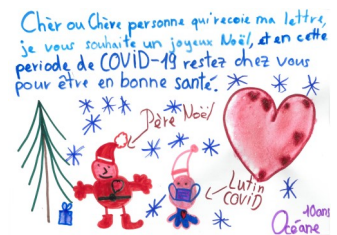 Chèr ou Chère personne qui recoie ma lettre,
je vous souhaite un joyeux Noël, et en cette
periode de COVID-19 restez chez vous
pour être en bonne santé.
Père Noël
Lutin
COVID
10ans
Océane